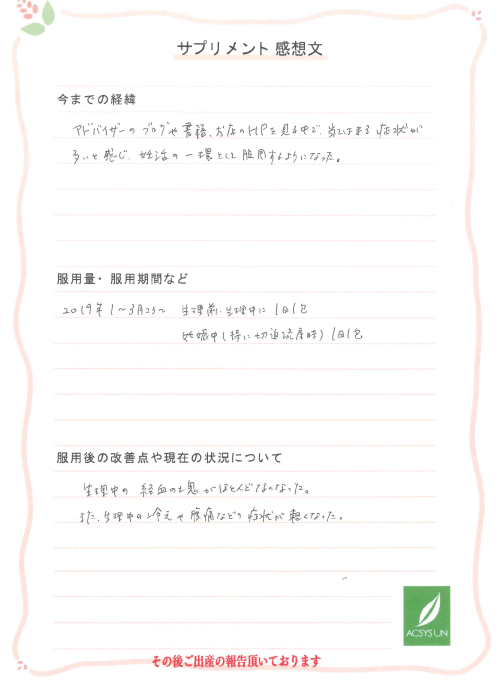 サプリメント 感想文
今までの経緯
アドバイザーのブログや書籍、お店のHPを見る中で、当てはまる症状が
多いと感じ、妊活の一環として服用するようになった。
服用量・服用期間など
2019年1〜3月ごろ〜 生理前、生理中に1日1包
妊娠中(特に切迫流産時)1日1包
服用後の改善点や現在の状況について
生理中の経血の塊がほとんどなくなった。
また、生理中の冷えや腹痛などの症状が軽くなった。
ACSYSUN
その後ご出産の報告頂いております